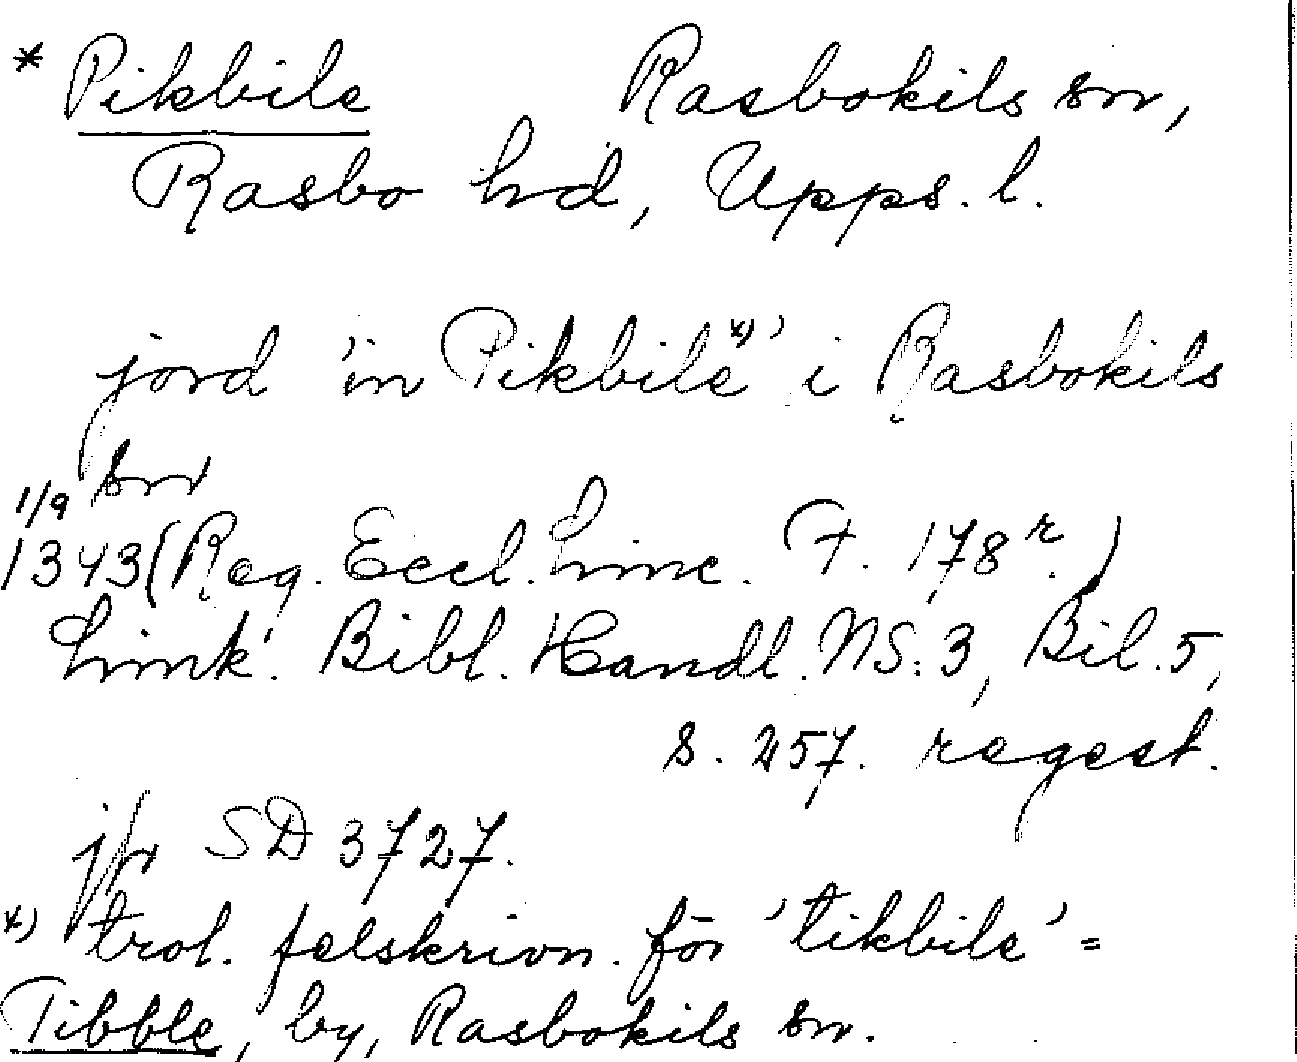 * Pikbile Rasbokils sn,
Rasbo hd, Upps. l.
jord 'in Pikbile x)' i Rasbokils
sn
1/9
1343 (Reg. Eccl. Linc. F. 178 r.)
Link. Bibl. Handl. NS: 3, Bil. 5,
s. 257. regest.
jfr SD 3727.
x) trol. felskrivn. för 'tikbile' =
Tibble, by, Rasbokils sn.